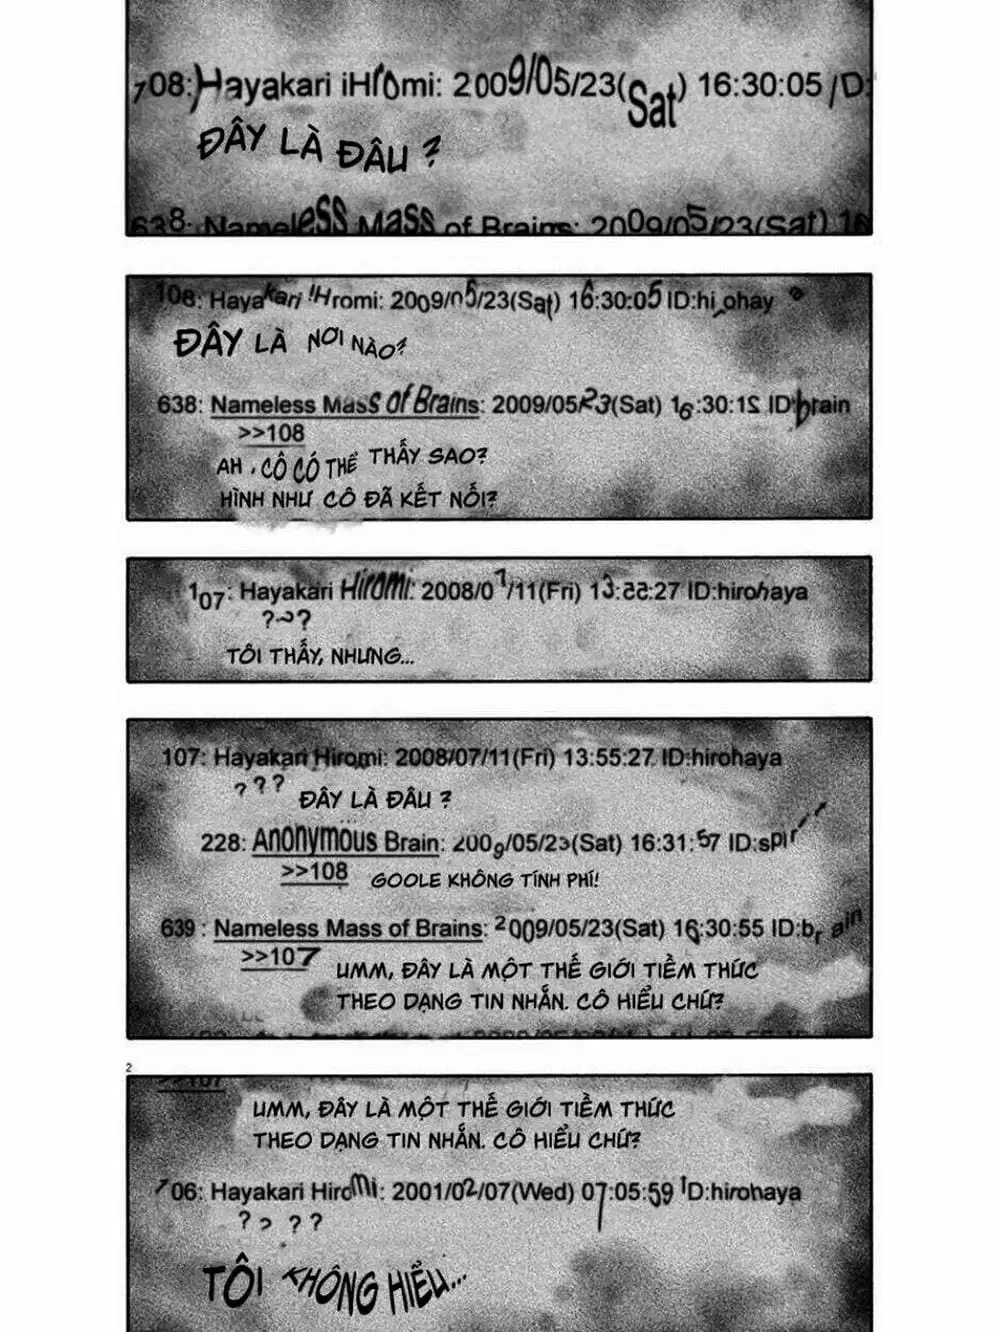 708: Hayakari iHromi: 2009/05/23(Sat) 16:30:05 ID:
ĐÂY LÀ ĐÂU ?
638: Nameless Mass of Brains: 2009/05/23(Sat) 16
108: Hayakari iHromi: 2009/05/23(Sat) 16:30:05 ID:hirohay
ĐÂY LÀ NƠI NÀO?
638: Nameless Mass of Brains: 2009/05/23(Sat) 16:30:12 ID:brain
>>108
AH, CÔ CÓ THỂ THẤY SAO?
HÌNH NHƯ CÔ ĐÃ KẾT NỐI?
107: Hayakari Hiromi: 2008/07/11(Fri) 13:55:27 ID:hirohaya
???
TÔI THẤY, NHƯNG...
107: Hayakari Hiromi: 2008/07/11(Fri) 13:55:27 ID:hirohaya
??? ĐÂY LÀ ĐÂU ?
228: Anonymous Brain: 2009/05/23(Sat) 16:31:57 ID:spir
>>108 GOOLE KHÔNG TÍNH PHÍ!
639 : Nameless Mass of Brains: 2009/05/23(Sat) 16:30:55 ID:brain
>>107 UMM, ĐÂY LÀ MỘT THẾ GIỚI TIỀM THỨC
THEO DẠNG TIN NHẮN. CÔ HIỂU CHỨ?
2
>>107
UMM, ĐÂY LÀ MỘT THẾ GIỚI TIỀM THỨC
THEO DẠNG TIN NHẮN. CÔ HIỂU CHỨ?
106: Hayakari Hiromi: 2001/02/07(Wed) 07:05:59 ID:hirohaya
? ? ? ?
TÔI KHÔNG HIỂU...